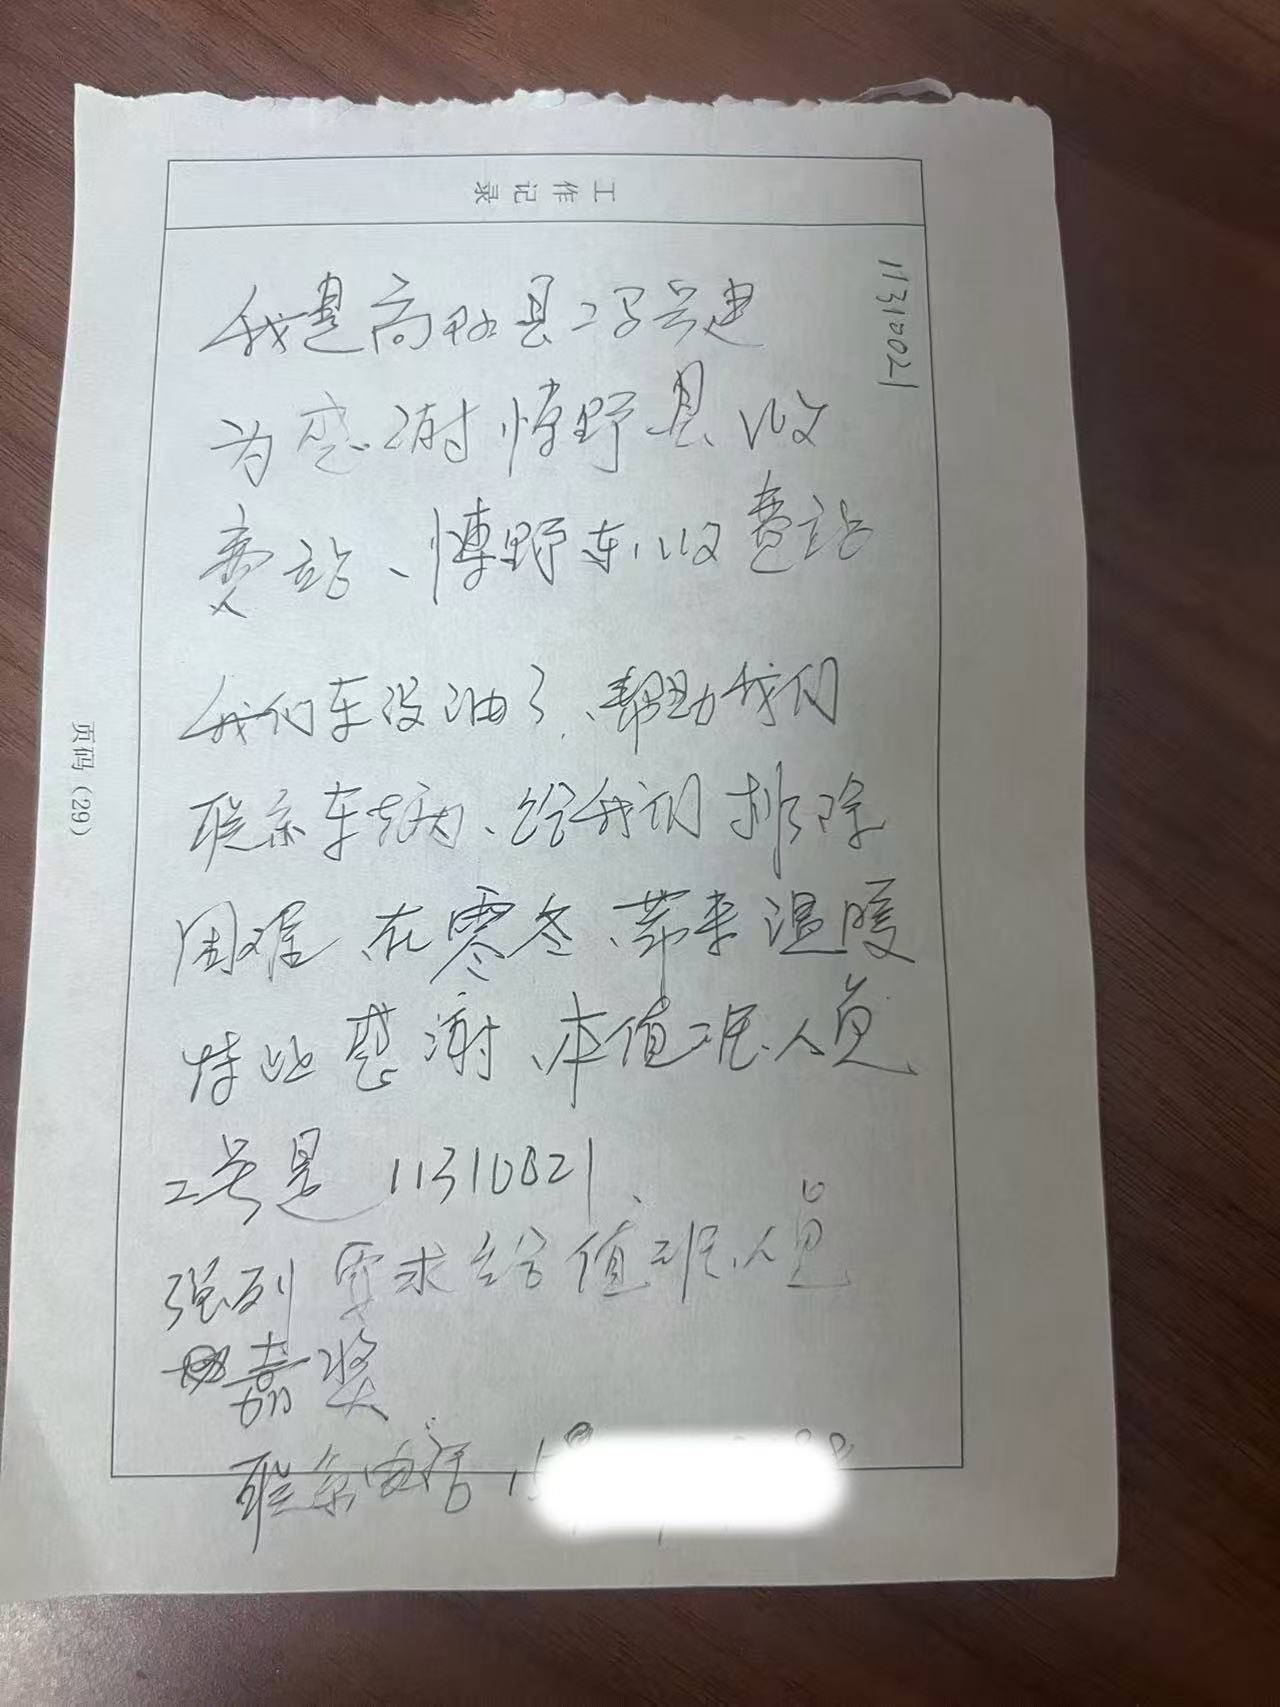 工作记录
11310021
我是高阳县冯兴建
为感谢博野县收
费站、博野东收费站
我们车没油了、帮助我们
联系车辆、给我们排除
困难、在寒冬、带来温暖
特此感谢、本值班人员
工号是 11310021、
强烈要求给值班人员
嘉奖
联系电话
页码（29）